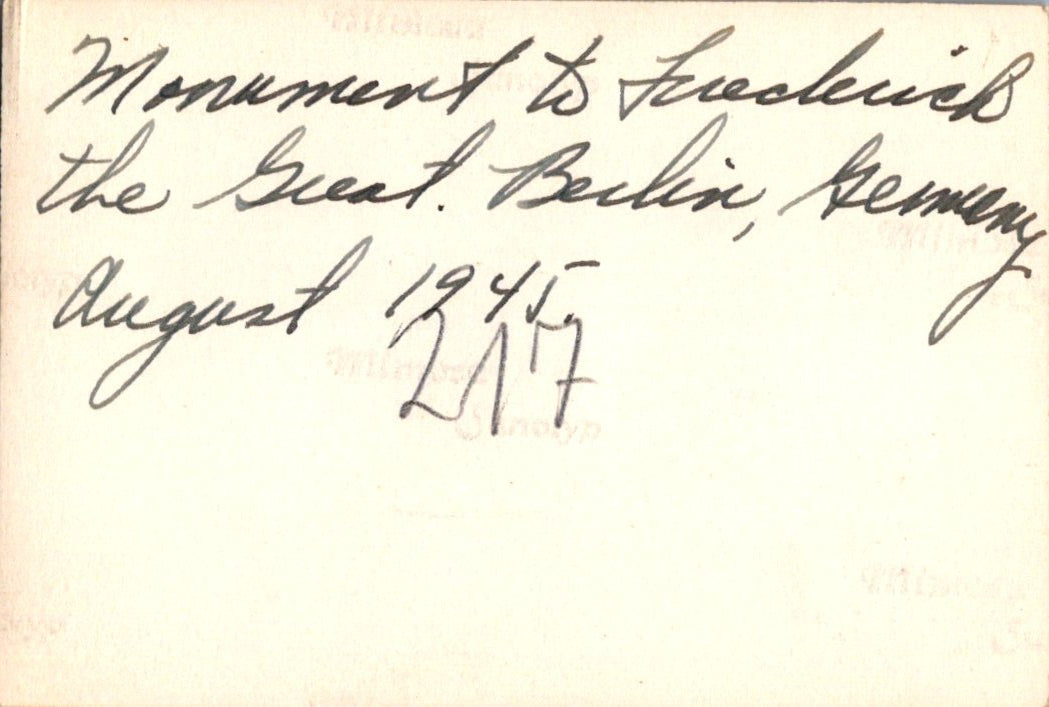 Monument to Frederick
the Great. Berlin, Germany
August 1945.
217